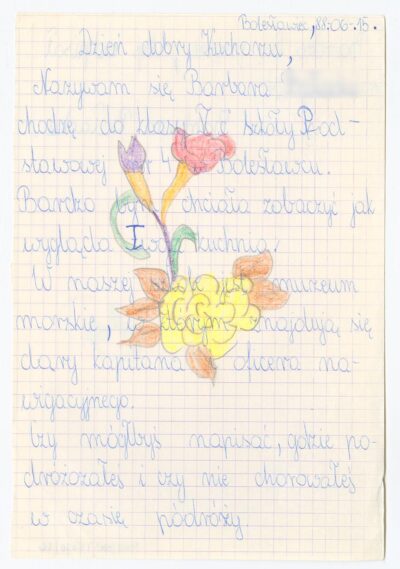 Bolesławiec, 88.06.15.
Dzień dobry Kucharzu,
Nazywam się Barbara
chodzę do klasy V szkoły Pod-
stawowej nr 4 w Bolesławcu.
Bardzo bym chciała zobaczyć jak
wygląda Twa kuchnia.
W naszej szkole jest muzeum
morskie, w którym znajdują się
dary kapitana i oficera na-
wigacyjnego.
Czy mógłbyś napisać, gdzie po-
dróżożałeś i czy nie chorowałeś
w czasię pódróży